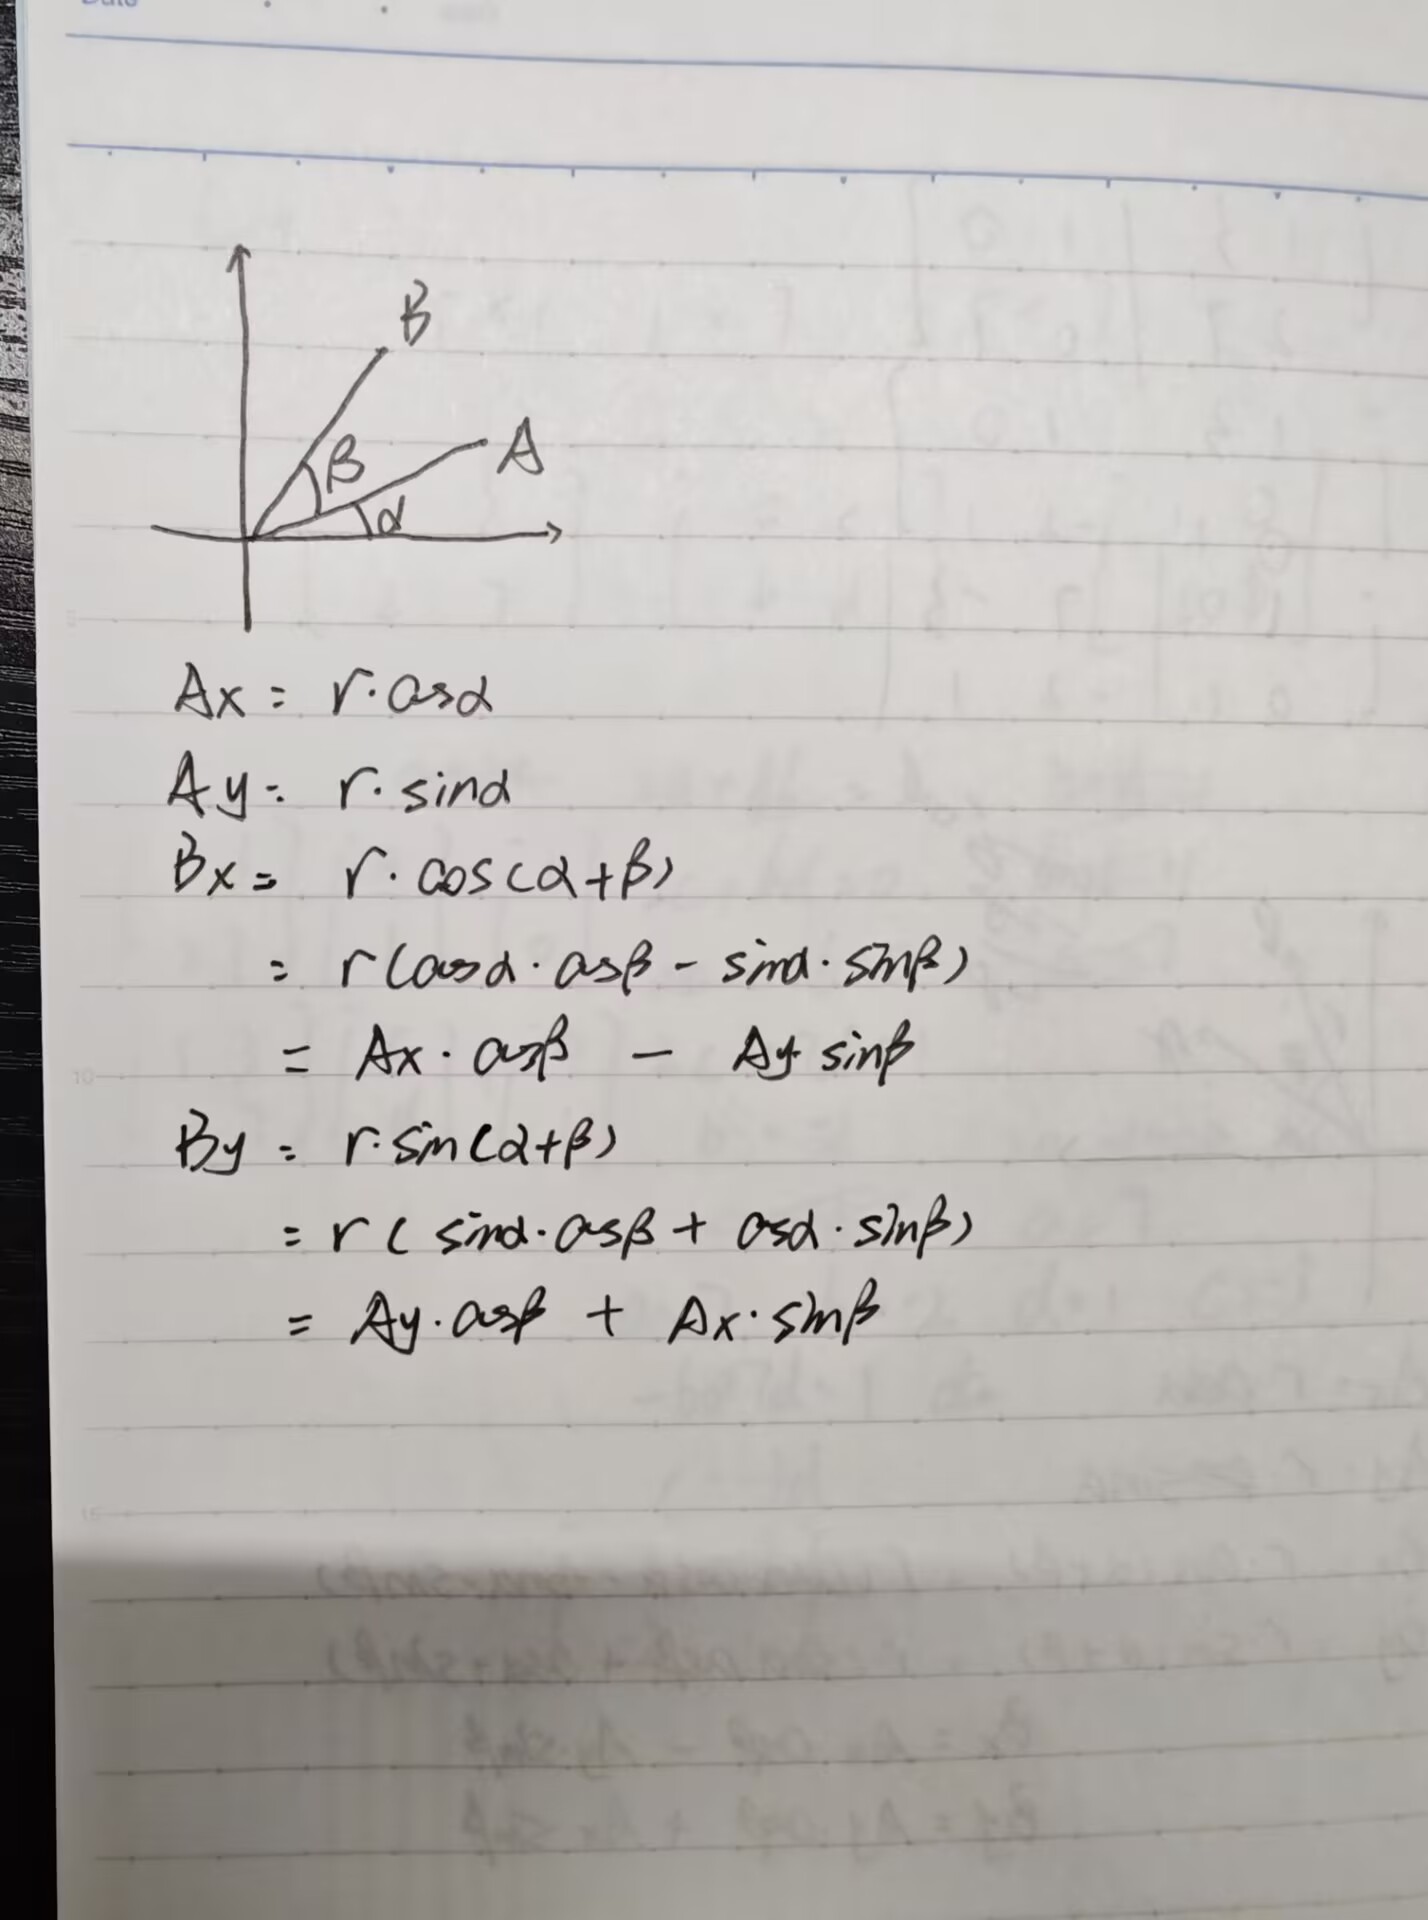 B
β
A
α
Ax = r·cosα
Ay = r·sinα
Bx = r·cos(α+β)
= r(cosα·cosβ - sinα·sinβ)
= Ax·cosβ - Ay sinβ
By = r·sin(α+β)
= r(sinα·cosβ + cosα·sinβ)
= Ay·cosβ + Ax·sinβ
10